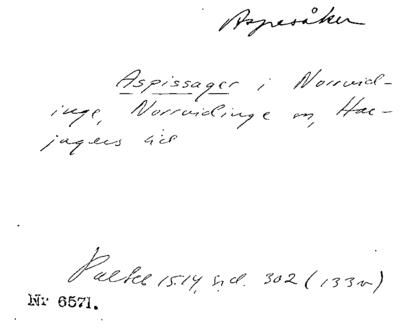 Aspesåker
Aspissager i Norrvid-
inge, Norrvidinge sn, Har-
jagers hd
Palteb 1514, sid. 302 (133v)
Nr 6571.